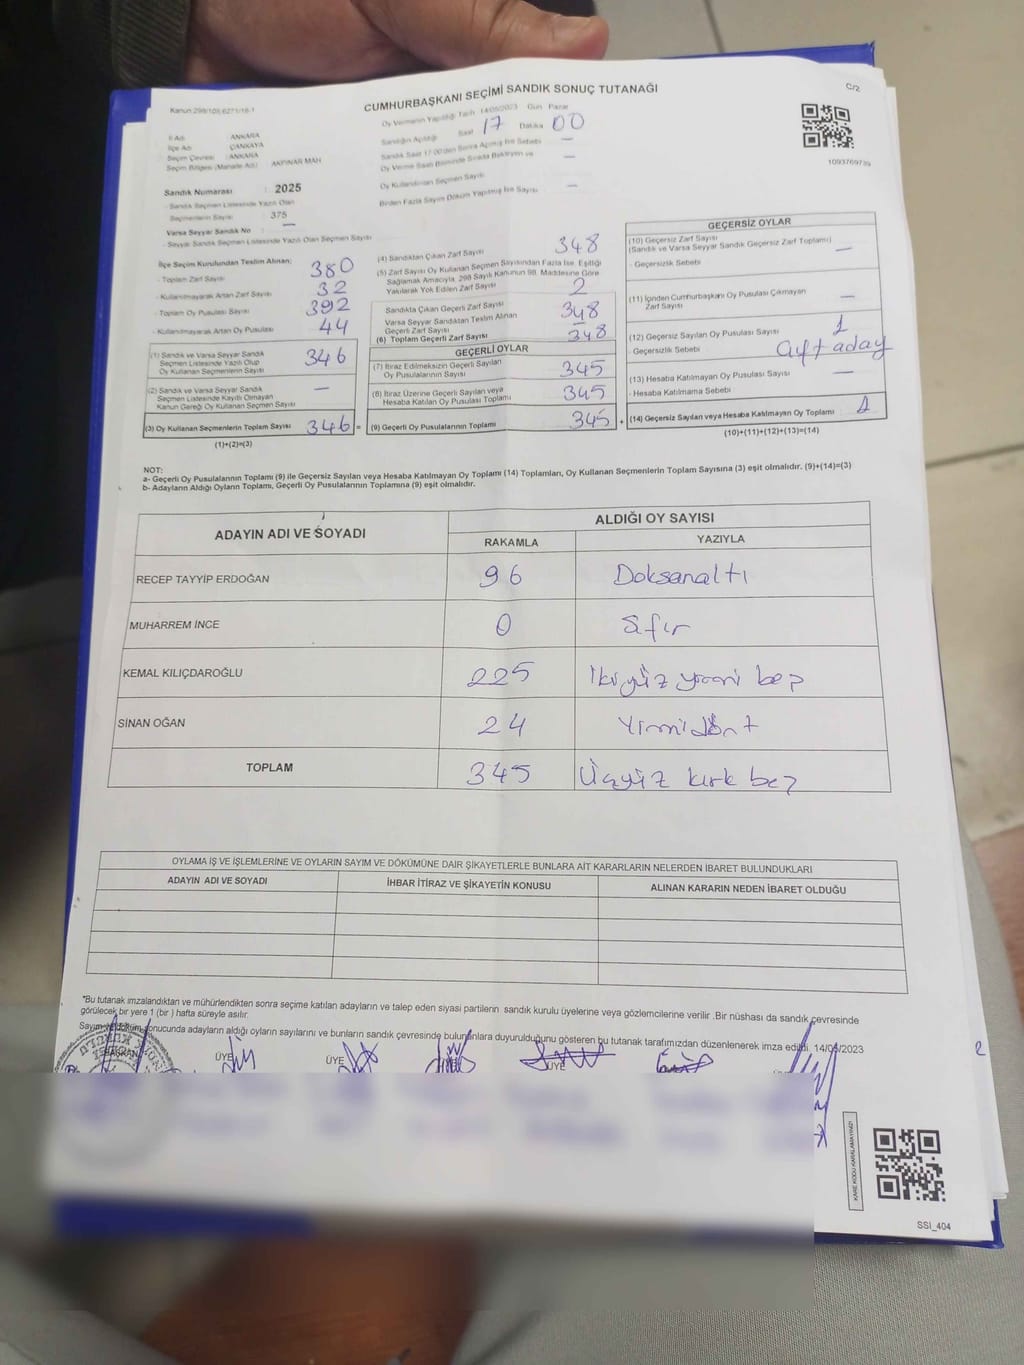 Kanun 298/109,6271/18-1
CUMHURBAŞKANI SEÇİMİ SANDIK SONUÇ TUTANAĞI
C/2
Oy Vermenin Yapıldığı Tarih 14/05/2023 Gün Pazar
İl Adı : ANKARA
İlçe Adı : ÇANKAYA
Seçim Çevresi : ANKARA
Seçim Bölgesi (Mahalle Adı) : AKPINAR MAH
Sandığın Açıldığı Saat 17 Dakika 00
Sandık Saat 17:00'den Sonra Açılmış İse Sebebi —
Oy Verme Saati Bitiminde Sırada Bekleyen ve —
Oy Kullandırılan Seçmen Sayısı
Birden Fazla Sayım Döküm Yapılmış İse Sayısı —
1093769739
Sandık Numarası : 2025
- Sandık Seçmen Listesinde Yazılı Olan
Seçmenlerin Sayısı : 375
Varsa Seyyar Sandık No : —
- Seyyar Sandık Seçmen Listesinde Yazılı Olan Seçmen Sayısı :
İlçe Seçim Kurulundan Teslim Alınan;
- Toplam Zarf Sayısı 380
- Kullanılmayarak Artan Zarf Sayısı 32
- Toplam Oy Pusulası Sayısı 392
- Kullanılmayarak Artan Oy Pusulası 44
(1) Sandık ve Varsa Seyyar Sandık
Seçmen Listesinde Yazılı Olup
Oy Kullanan Seçmenlerin Sayısı 346
(2) Sandık ve Varsa Seyyar Sandık
Seçmen Listesinde Kayıtlı Olmayan
Kanun Gereği Oy Kullanan Seçmen Sayısı —
(3) Oy Kullanan Seçmenlerin Toplam Sayısı 346 =
(1)+(2)=(3)
(4) Sandıktan Çıkan Zarf Sayısı 348
(5) Zarf Sayısı Oy Kullanan Seçmen Sayısından Fazla İse, Eşitliği
Sağlamak Amacıyla, 298 Sayılı Kanunun 98. Maddesine Göre
Yakılarak Yok Edilen Zarf Sayısı 2
Sandıkta Çıkan Geçerli Zarf Sayısı 348
Varsa Seyyar Sandıktan Teslim Alınan
Geçerli Zarf Sayısı —
(6) Toplam Geçerli Zarf Sayısı 348
GEÇERLİ OYLAR
(7) İtiraz Edilmeksizin Geçerli Sayılan
Oy Pusulalarının Sayısı 345
(8) İtiraz Üzerine Geçerli Sayılan veya
Hesaba Katılan Oy Pusulası Toplamı 345
(9) Geçerli Oy Pusulalarının Toplamı 345 +
GEÇERSİZ OYLAR
(10) Geçersiz Zarf Sayısı
(Sandık ve Varsa Seyyar Sandık Geçersiz Zarf Toplamı) —
- Geçersizlik Sebebi
(11) İçinden Cumhurbaşkanı Oy Pusulası Çıkmayan
Zarf Sayısı —
(12) Geçersiz Sayılan Oy Pusulası Sayısı 1
- Geçersizlik Sebebi çift aday
(13) Hesaba Katılmayan Oy Pusulası Sayısı —
- Hesaba Katılmama Sebebi
(14) Geçersiz Sayılan veya Hesaba Katılmayan Oy Toplamı 1
(10)+(11)+(12)+(13)=(14)
NOT:
a- Geçerli Oy Pusulalarının Toplamı (9) ile Geçersiz Sayılan veya Hesaba Katılmayan Oy Toplamı (14) Toplamları, Oy Kullanan Seçmenlerin Toplam Sayısına (3) eşit olmalıdır. (9)+(14)=(3)
b- Adayların Aldığı Oyların Toplamı, Geçerli Oy Pusulalarının Toplamına (9) eşit olmalıdır.
ADAYIN ADI VE SOYADI
ALDIĞI OY SAYISI
RAKAMLA YAZIYLA
RECEP TAYYİP ERDOĞAN 96 Doksanaltı
MUHARREM İNCE 0 Sıfır
KEMAL KILIÇDAROĞLU 225 İkiyüz yirmi beş
SİNAN OĞAN 24 Yirmidört
TOPLAM 345 Üçyüz kırk beş
OYLAMA İŞ VE İŞLEMLERİNE VE OYLARIN SAYIM VE DÖKÜMÜNE DAİR ŞİKAYETLERLE BUNLARA AİT KARARLARIN NELERDEN İBARET BULUNDUKLARI
ADAYIN ADI VE SOYADI İHBAR İTİRAZ VE ŞİKAYETİN KONUSU ALINAN KARARIN NEDEN İBARET OLDUĞU
*Bu tutanak imzalandıktan ve mühürlendikten sonra seçime katılan adayların ve talep eden siyasi partilerin sandık kurulu üyelerine veya gözlemcilerine verilir .Bir nüshası da sandık çevresinde
görülecek bir yere 1 (bir ) hafta süreyle asılır.
Sayım ve döküm sonucunda adayların aldığı oyların sayılarını ve bunların sandık çevresinde bulunanlara duyurulduğunu gösteren bu tutanak tarafımızdan düzenlenerek imza edildi. 14/05/2023
BAŞKAN ÜYE ÜYE ÜYE
KARE KODU KARALAMAYINIZ!
SSI_404